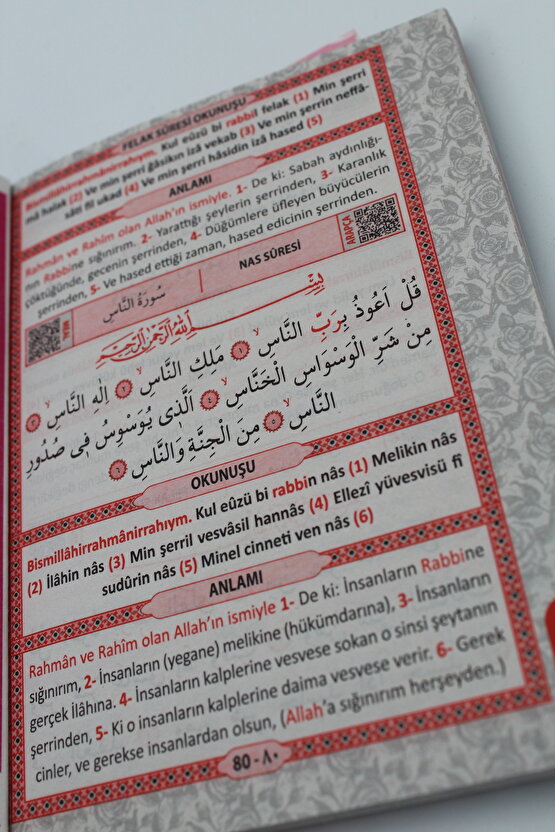 FELAK SÛRESİ OKUNUŞU
Bismillâhirrahmânirrahıym. Kul eûzü bi rabbil felak (1) Min şerri
mâ halak (2) Ve min şerri ğâsikın izâ vekab (3) Ve min şerrin neffâ-
sâti fil ukad (4) Ve min şerri hâsidin izâ hased (5)
ANLAMI
Rahmân ve Rahîm olan Allah'ın ismiyle. 1- De ki: Sabah aydınlığı-
nın Rabbine sığınırım. 2- Yarattığı şeylerin şerrinden, 3- Karanlık
çöktüğünde, gecenin şerrinden, 4- Düğümlere üfleyen büyücülerin
şerrinden, 5- Ve hased ettiği zaman, hased edicinin şerrinden.
MEAL
سُورَةُ النَّاسِ
NAS SÛRESİ
ARAPÇA
بِسْمِ اللّٰهِ الرَّحْمٰنِ الرَّحِيمِ
قُلْ اَعُوذُ بِرَبِّ النَّاسِ ﴿١﴾ مَلِكِ النَّاسِ ﴿٢﴾ اِلٰهِ النَّاسِ ﴿٣﴾
مِنْ شَرِّ الْوَسْوَاسِ الْخَنَّاسِ ﴿٤﴾ اَلَّذٖى يُوَسْوِسُ فٖى صُدُورِ
النَّاسِ ﴿٥﴾ مِنَ الْجِنَّةِ وَالنَّاسِ ﴿٦﴾
OKUNUŞU
Bismillâhirrahmânirrahıym. Kul eûzü bi rabbin nâs (1) Melikin nâs
(2) İlâhin nâs (3) Min şerril vesvâsil hannâs (4) Ellezî yüvesvisü fî
sudûrin nâs (5) Minel cinneti ven nâs (6)
ANLAMI
Rahmân ve Rahîm olan Allah'ın ismiyle 1- De ki: İnsanların Rabbine
sığınırım, 2- İnsanların (yegane) melikine (hükümdarına), 3- İnsanların
gerçek İlâhına. 4- İnsanların kalplerine vesvese sokan o sinsi şeytanın
şerrinden, 5- Ki o insanların kalplerine daima vesvese verir. 6- Gerek
cinler, ve gerekse insanlardan olsun, (Allah'a sığınırım herşeyden.)
80 - ٨٠